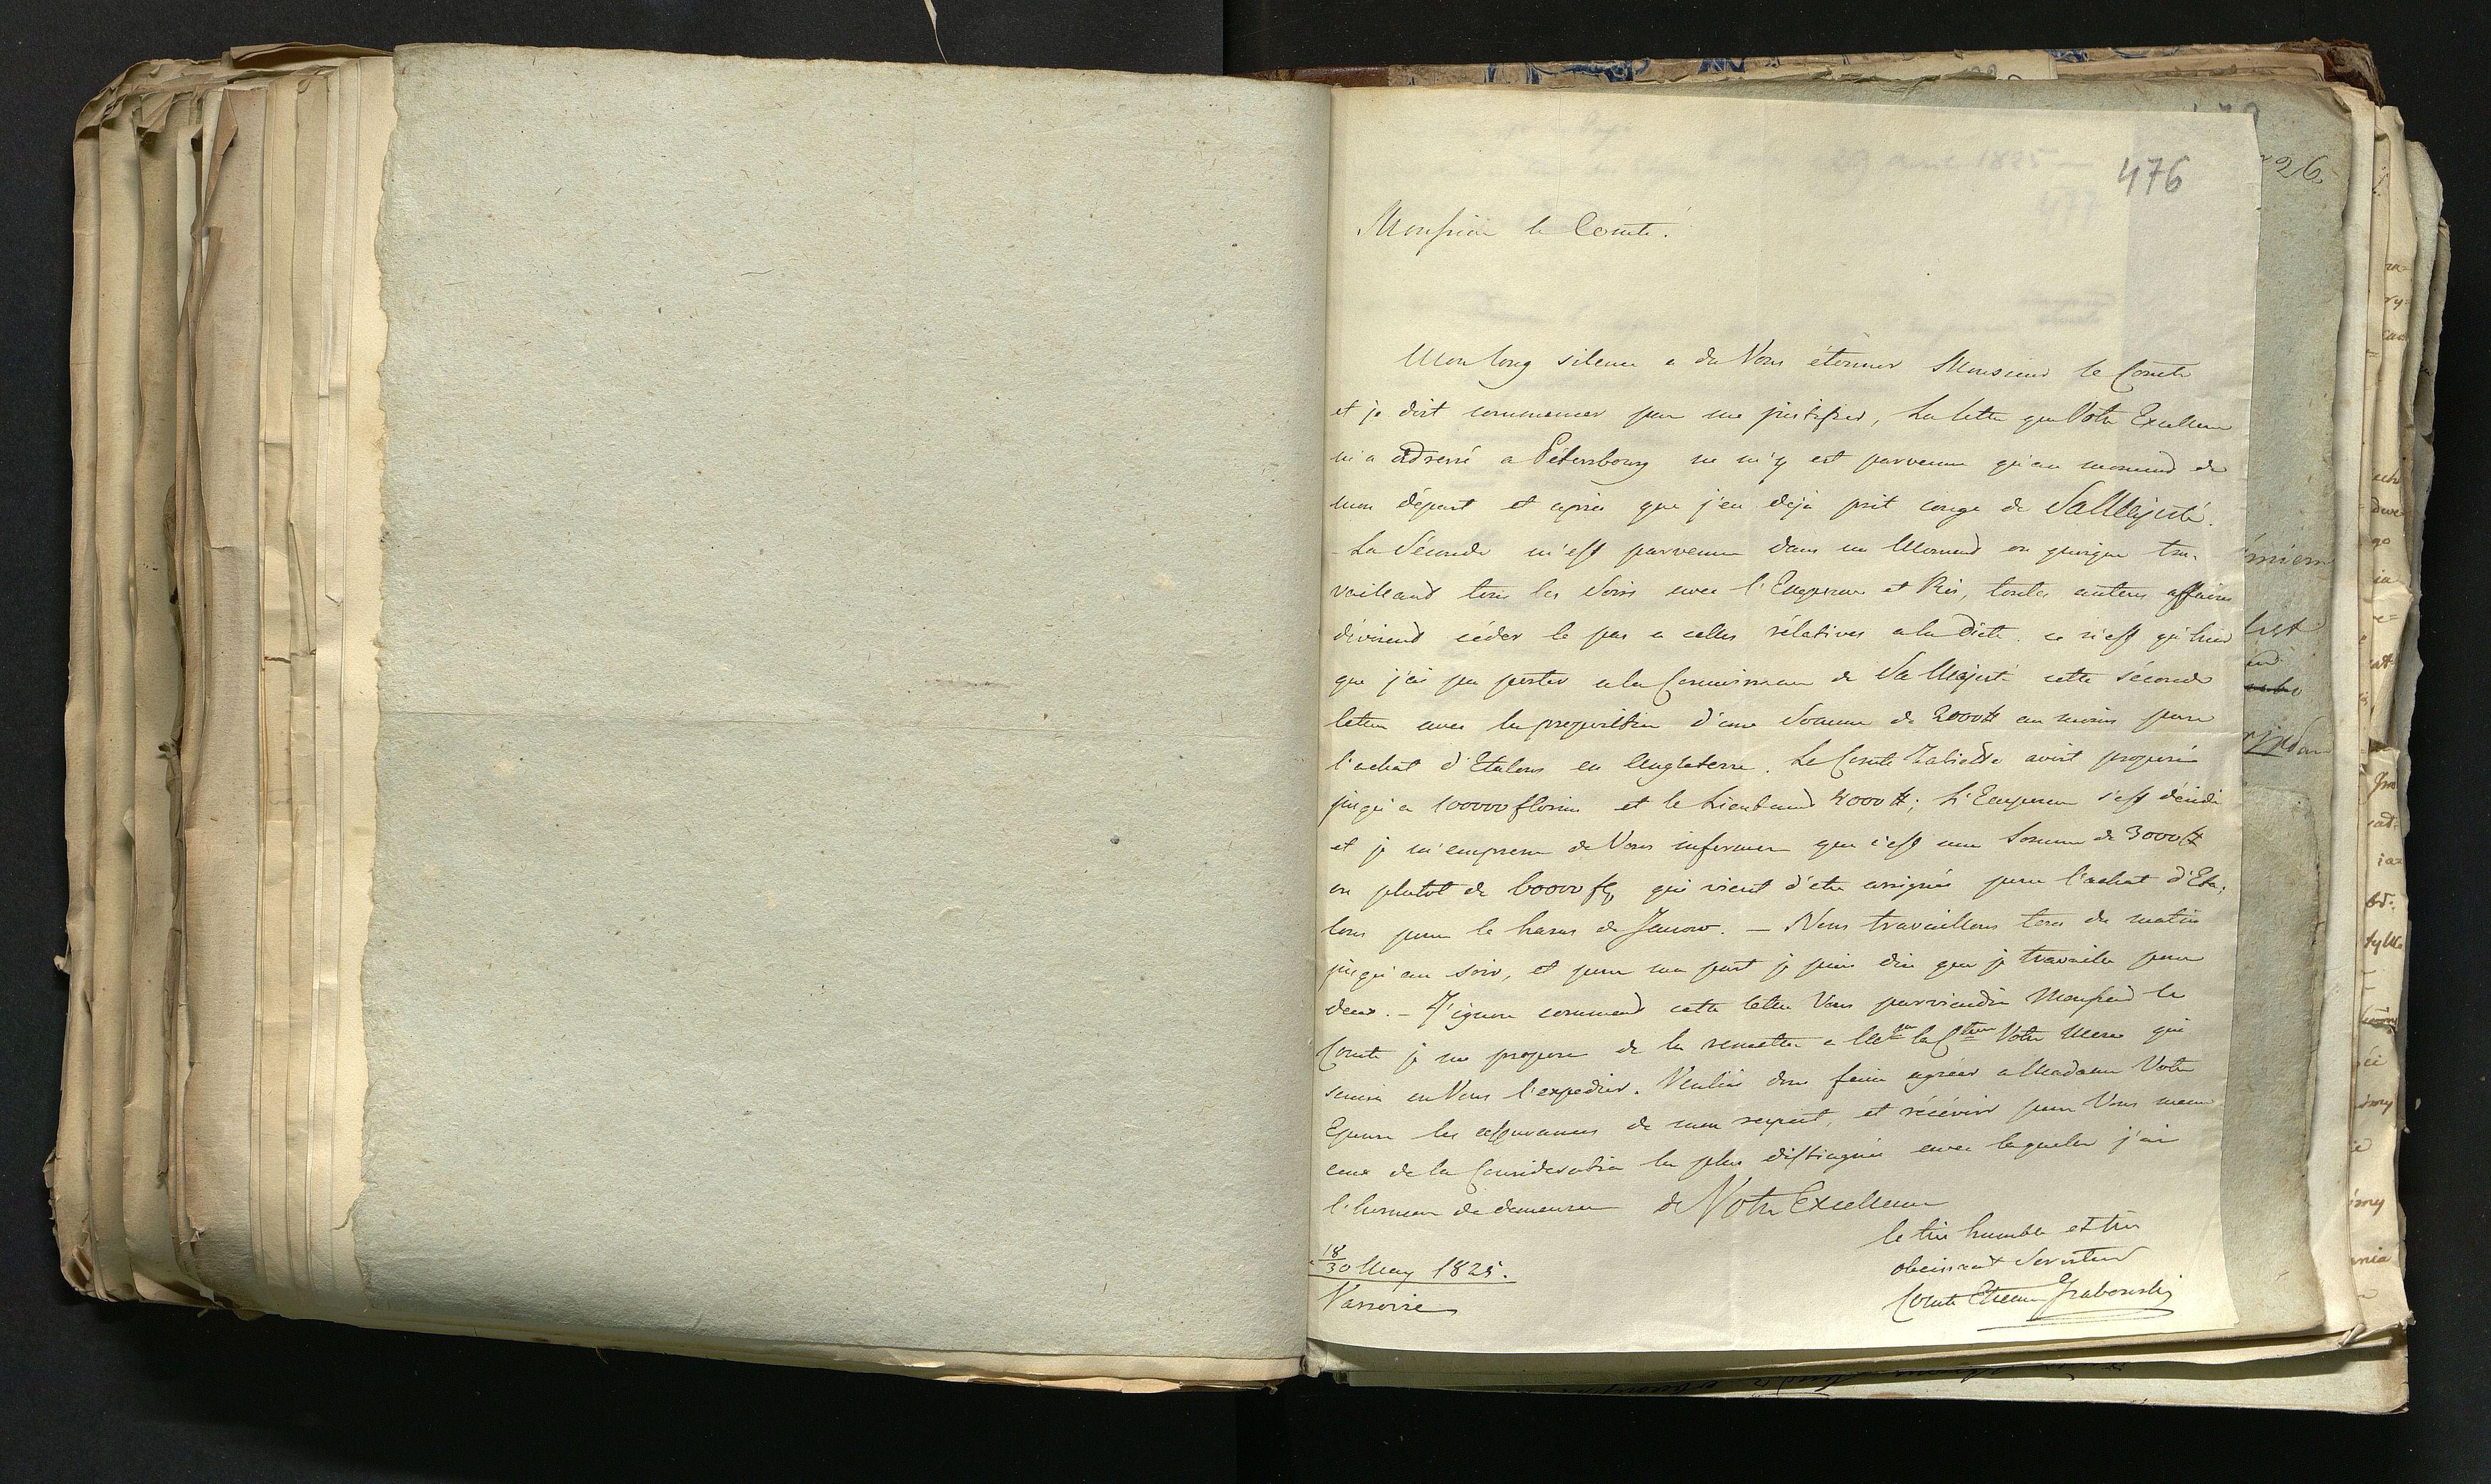 476
Monsieur le Comte!
Mon long silence a du Vous étonner Monsieur le Comte
et je doit commencer par me justifier, La lettre que Votre Excellence
m'a adressé a Pétersbourg ne m'y est parvenue qu'au moment de
mon départ et après que j'eu déja prit congé de Sa Majesté.
La Séconde m'est parvenue dans un Moment ou quoique tra-
vaillant tous les Soirs avec l'Empereur et Roi, toutes autres affaires
devoient céder le pas a celles rélatives a la Diète. ce n'est qu'hier
que j'ai pu porter a la Connaissance de Sa Majesté cette séconde
lettre avec la proposition d'une Somme de 2000# au moins pour
l'achat d'Etalons en Angleterre. Le Comte Zabiello avoit proposé
jusqu'a 100000 florins et le Lieutenant 4000#; L'Empereur s'est décidé
et je m'empresse de Vous informer que c'est une Somme de 3000#
ou plutot de 60000 fl, qui vient d'etre assignée pour l'achat d'Eta-
lons pour le haras de Janow. — Nous travaillons tous du matin
jusqu'au soir, et pour ma part je puis dire que je travaille pour
deux. — J'ignore comment cette lettre Vous parviendra Monsieur le
Comte je me propose de la remettre a Mme la Ctesse Votre Mere qui
saura en Vous l'expedier. Veuliés donc faire agréer a Madame Votre
Epouse les assurances de mon respect, et récévoir pour Vous meme
ceux de la Considération la plus distinguée avec laquelle j'ai
l'honneur de demeurer de Votre Excellence
le très humble et très
obeissant Serviteur
Comte Etienne Grabowski
18/30 May 1825.
Varsovie
26